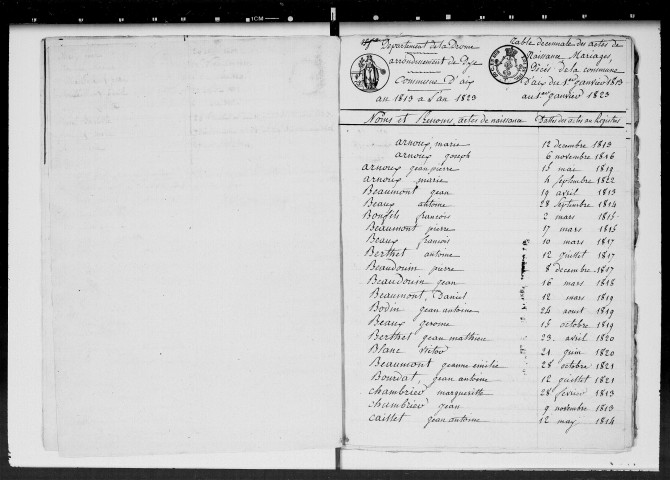 Département de la Drome
arrondissement de Dye
Commune D'aix
an 1813 a l'an 1823
table decennale des actes de
Naissance, Mariages,
Décès de la commune
D'aix du 1er janvier 1813
au 1er janvier 1823
Noms et Prenoms, actes de naissance Dates des actes au Registre
arnoux, marie 12 decembre 1813
arnoux joseph 6 novembre 1816
arnoux jean pierre 15 mai 1819
arnoux marie 4 septembre 1822
Beaumont jean 19 avril 1813
Beaux antoine 28 septembre 1814
Bonfils francois 2 mars 1815
Beaumont pierre 17 mars 1815
Beaux francois 10 mars 1817
Berthet antoine 12 juillet 1817
Beaudouin pierre 8 decembre 1817
Beaudouin jean 16 mars 1818
Beaumont, Daniel 12 mars 1819
Bodin jean antoine 24 aout 1819
Beaux jerome 15 octobre 1819
Berthet jean mathieu 23 avril 1820
Blanc victor 21 juin 1820
Beaumont jeanne emilie 28 octobre 1821
Bourdat, jean antoine 12 juillet 1821
chambrier margueritte 28 fevrier 1813
chambrier jean 9 novembre 1813
caillet jean antoine 12 may 1814